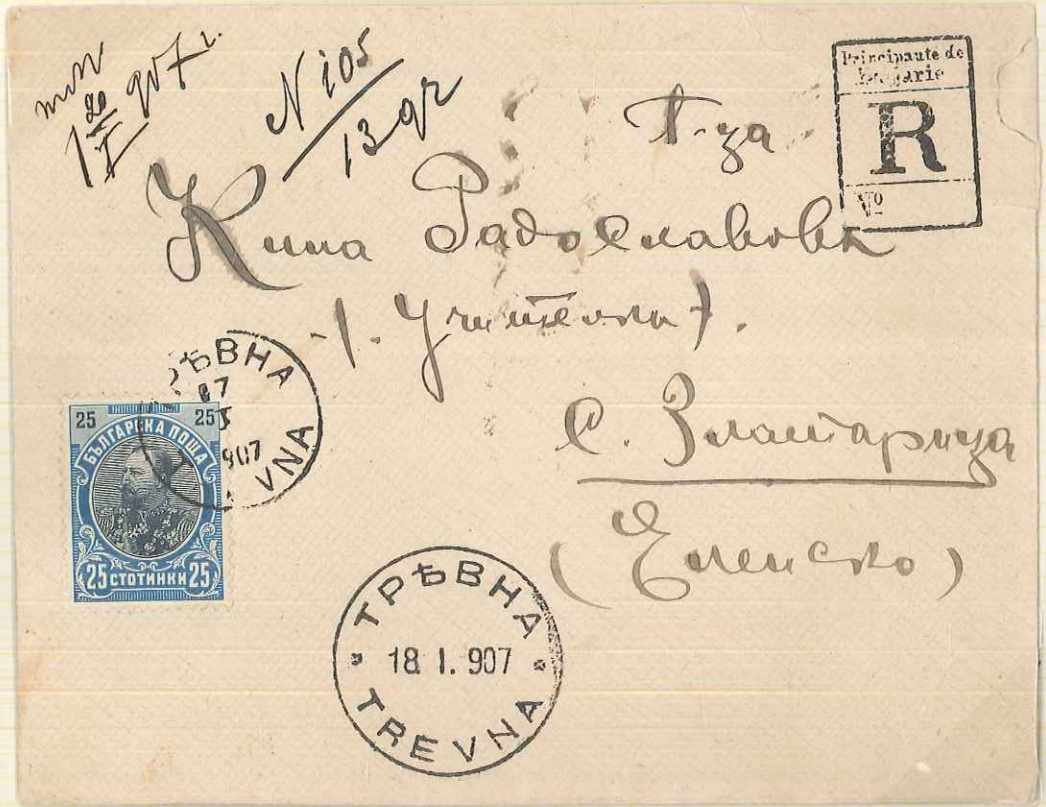 20
I 907 г.
N 105
13 gr
Principauté de
Bulgarie
R
№
Г-ца
Кина Радославовa
(. Учителка).
с. Златарица
(Еленско)
ТРѢВНА
17
I
907
25 25
БЪЛГАРСКА ПОЩА
25 СТОТИНКИ 25
ТРѢВНА
18. I. 907
TREVNA